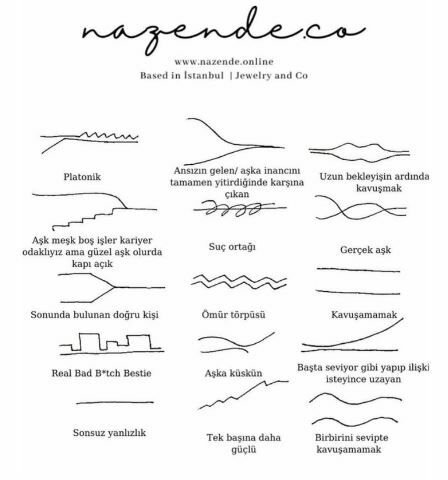 nazende.co
www.nazende.online
Based in İstanbul | Jewelry and Co
Platonik
Ansızın gelen/ aşka inancını
tamamen yitirdiğinde karşına
çıkan
Uzun bekleyişin ardında
kavuşmak
Aşk meşk boş işler kariyer
odaklıyız ama güzel aşk olurda
kapı açık
Suç ortağı
Gerçek aşk
Sonunda bulunan doğru kişi
Ömür törpüsü
Kavuşamamak
Real Bad B*tch Bestie
Aşka küskün
Başta seviyor gibi yapıp ilişki
isteyince uzayan
Sonsuz yanlızlık
Tek başına daha
güçlü
Birbirini sevipte
kavuşamamak